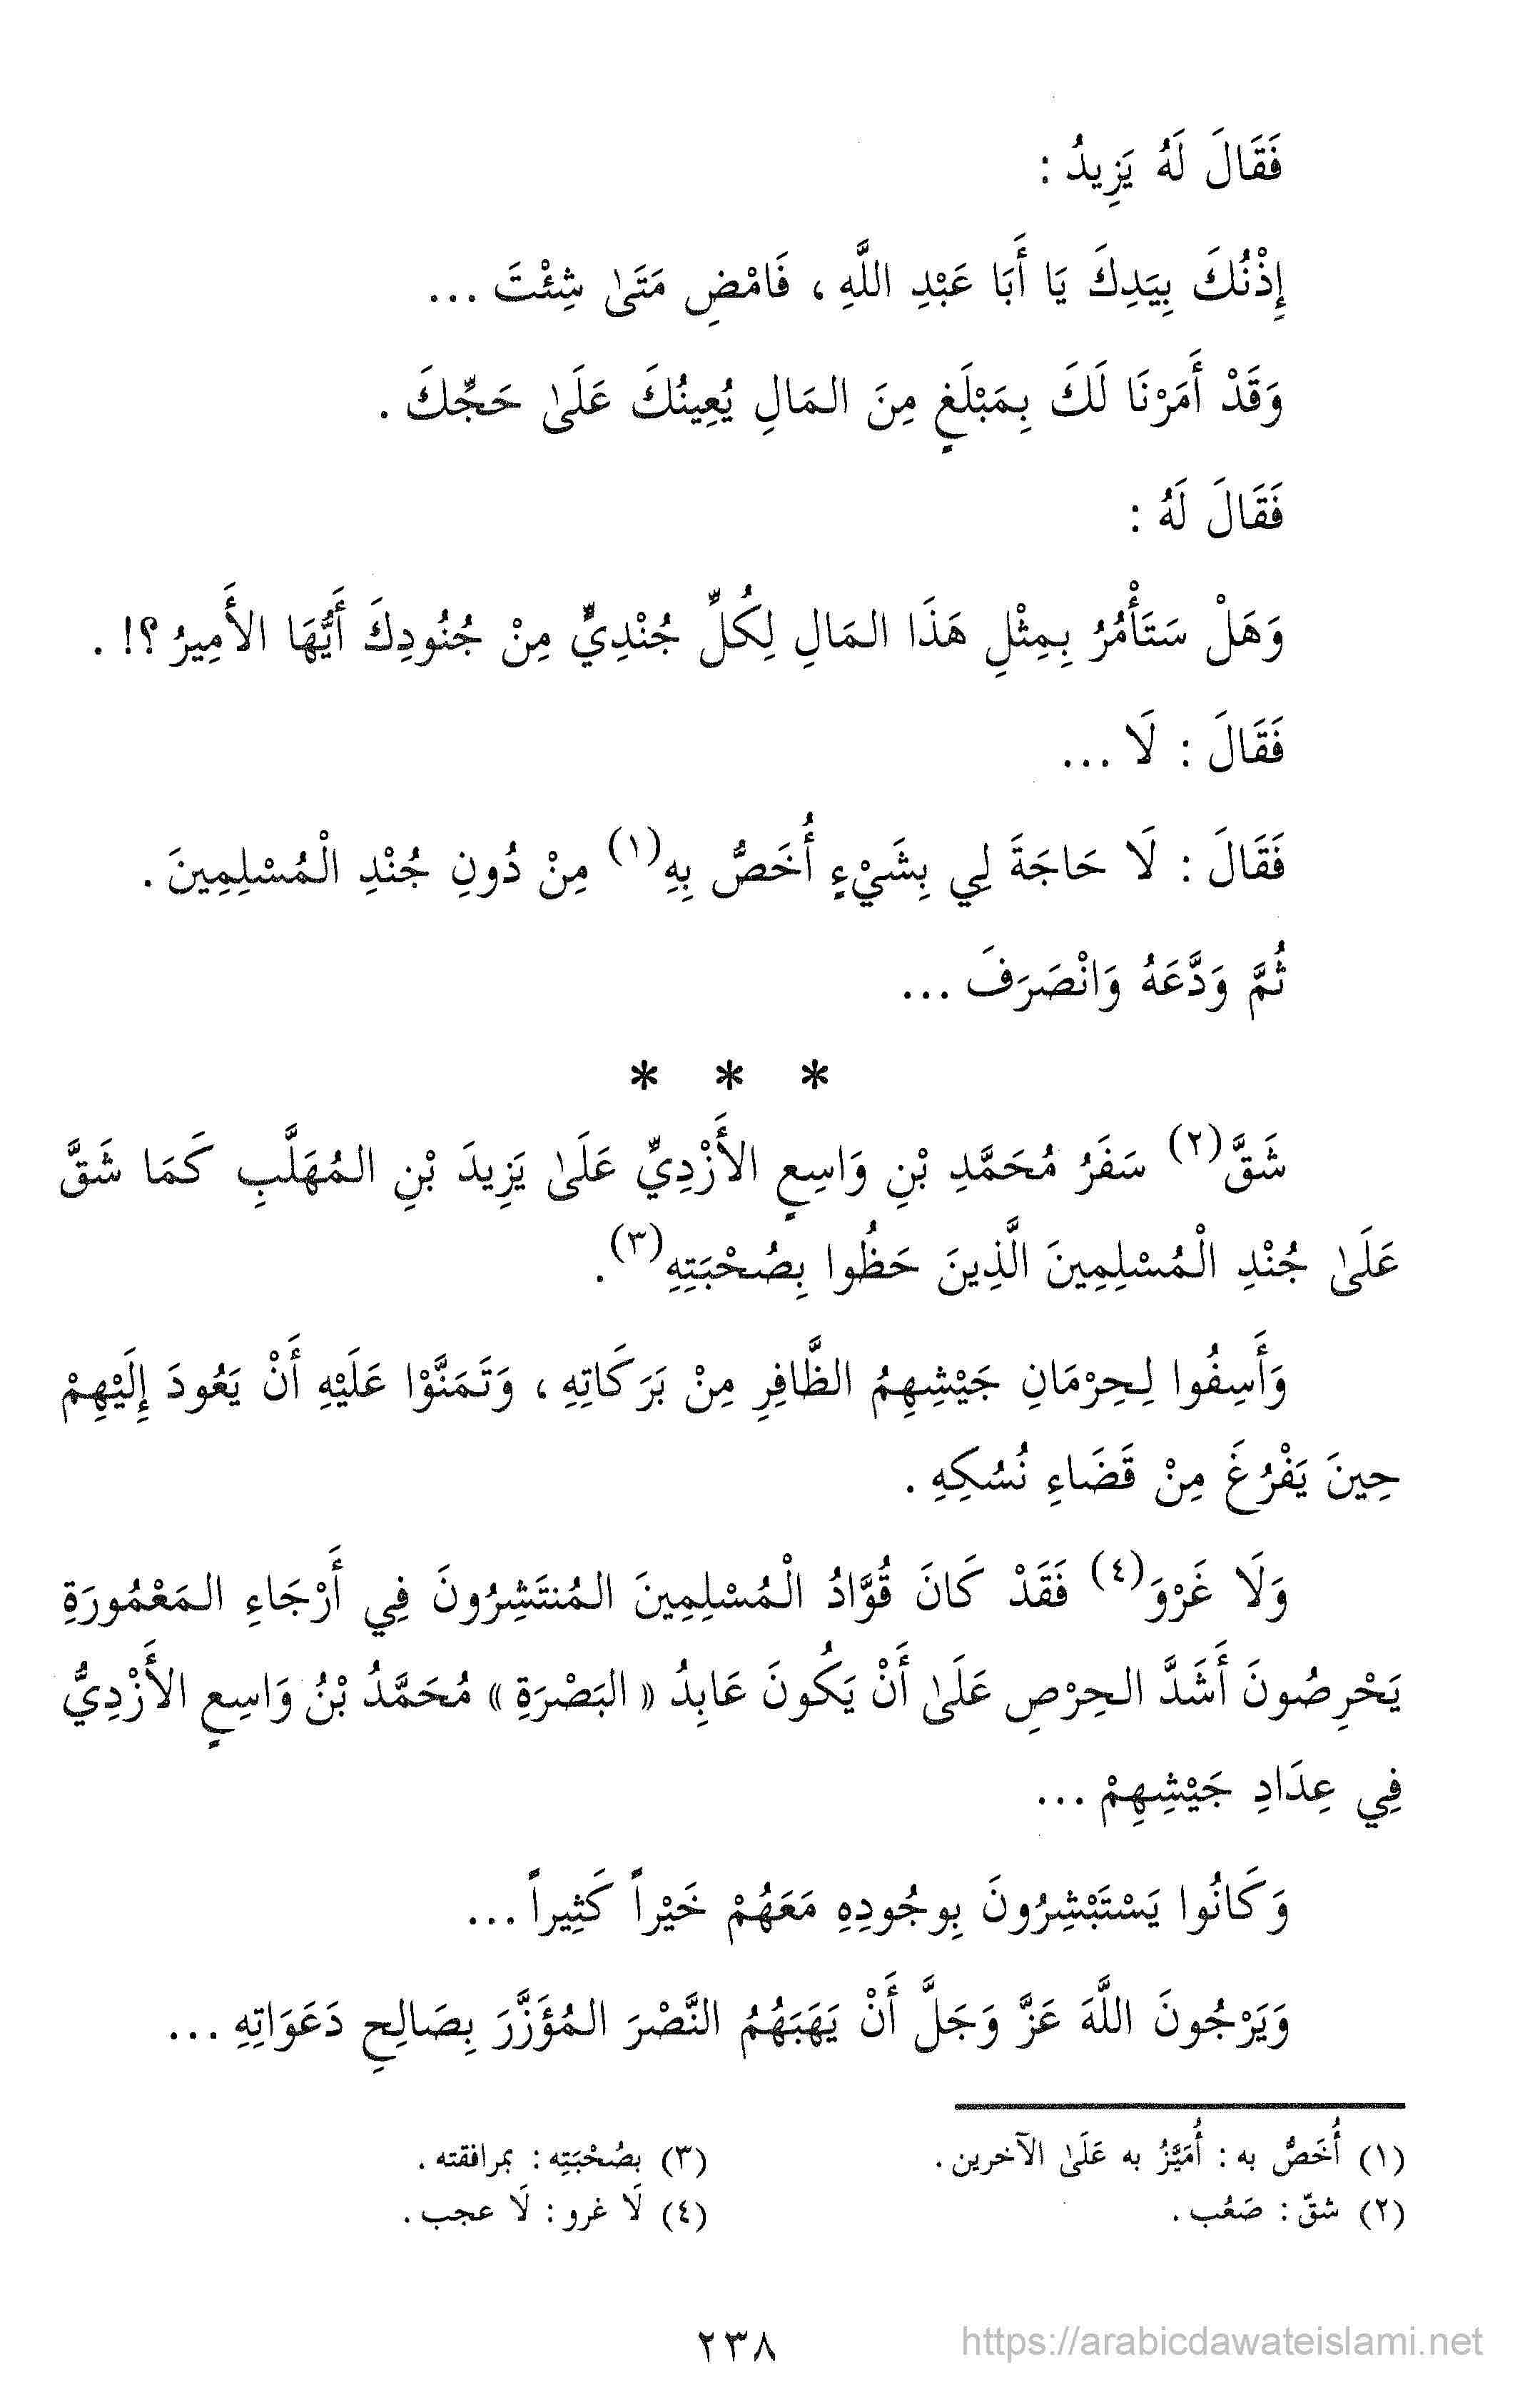 فَقَالَ لَهُ يَزِيدُ :
إِذْنُكَ بِيَدِكَ يَا أَبَا عَبْدِ اللَّهِ ، فَامْضِ مَتَىٰ شِئْتَ ...
وَقَدْ أَمَرْنَا لَكَ بِمَبْلَغٍ مِنَ المَالِ يُعِينُكَ عَلَىٰ حَجِّكَ .
فَقَالَ لَهُ :
وَهَلْ سَتَأْمُرُ بِمِثْلِ هَذَا المَالِ لِكُلِّ جُنْدِيٍّ مِنْ جُنُودِكَ أَيُّهَا الأَمِيرُ ؟! .
فَقَالَ : لَا ...
فَقَالَ : لَا حَاجَةَ لِي بِشَيْءٍ أُخَصُّ بِهِ(١) مِنْ دُونِ جُنْدِ الْمُسْلِمِينَ .
ثُمَّ وَدَّعَهُ وَانْصَرَفَ ...
* * *
شَقَّ(٢) سَفَرُ مُحَمَّدِ بْنِ وَاسِعٍ الأَزْدِيِّ عَلَىٰ يَزِيدَ بْنِ المُهَلَّبِ كَمَا شَقَّ
عَلَىٰ جُنْدِ الْمُسْلِمِينَ الَّذِينَ حَظُوا بِصُحْبَتِهِ(٣).
وَأَسِفُوا لِحِرْمَانِ جَيْشِهِمُ الظَّافِرِ مِنْ بَرَكَاتِهِ ، وَتَمَنَّوْا عَلَيْهِ أَنْ يَعُودَ إِلَيْهِمْ
حِينَ يَفْرُغَ مِنْ قَضَاءِ نُسُكِهِ .
وَلَا غَرْوَ(٤) فَقَدْ كَانَ قُوَّادُ الْمُسْلِمِينَ المُنتَشِرُونَ فِي أَرْجَاءِ المَعْمُورَةِ
يَحْرِصُونَ أَشَدَّ الحِرْصِ عَلَىٰ أَنْ يَكُونَ عَابِدُ « البَصْرَةِ » مُحَمَّدُ بْنُ وَاسِعٍ الأَزْدِيُّ
فِي عِدَادِ جَيْشِهِمْ ...
وَكَانُوا يَسْتَبْشِرُونَ بِوجُودِهِ مَعَهُمْ خَيْراً كَثِيراً ...
وَيَرْجُونَ اللَّهَ عَزَّ وَجَلَّ أَنْ يَهَبَهُمُ النَّصْرَ المُؤَزَّرَ بِصَالِحِ دَعَوَاتِهِ ...
(١) أُخَصُّ به : أُمَيَّزُ به عَلَىٰ الآخرين .
(٢) شقّ : صَعُب .
(٣) بصُحْبَتِه : بمرافقته .
(٤) لَا غرو : لَا عجب .
٢٣٨
https://arabicdawateislami.net